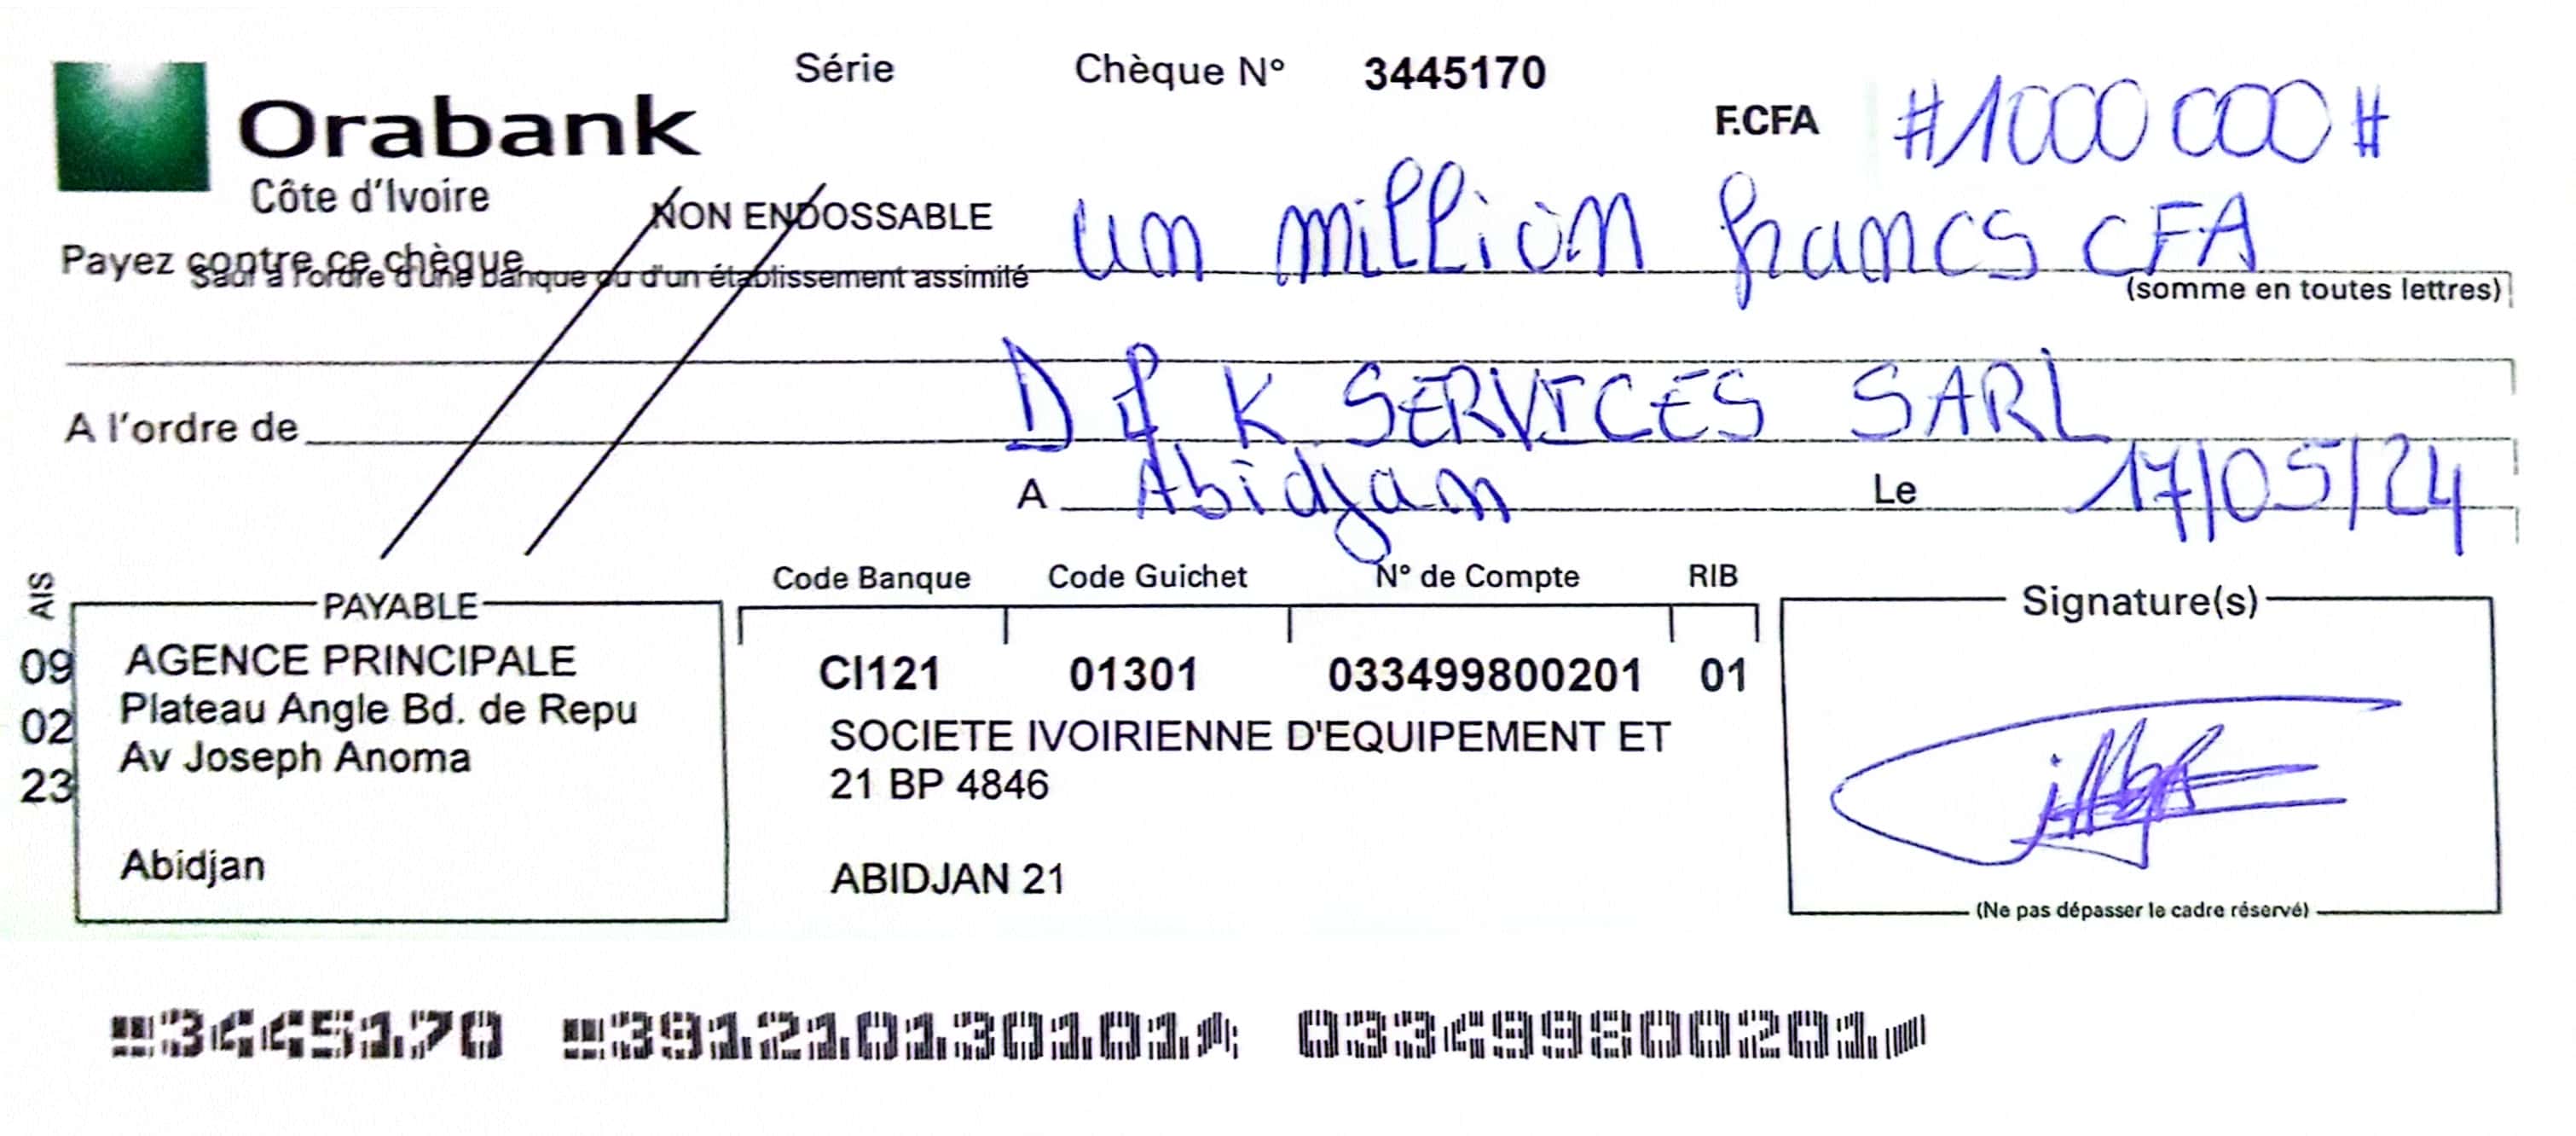 Série Chèque N° 3445170
Orabank
Côte d'Ivoire
F.CFA #1000 000#
NON ENDOSSABLE
Payez contre ce chèque un million francs CFA
Sauf à l'ordre d'une banque ou d'un établissement assimilé
(somme en toutes lettres)
A l'ordre de D & K SERVICES SARL
A Abidjan Le 17/05/24
AIS
09
02
23
PAYABLE
AGENCE PRINCIPALE
Plateau Angle Bd. de Repu
Av Joseph Anoma
Abidjan
Code Banque Code Guichet N° de Compte RIB
CI121 01301 033499800201 01
SOCIETE IVOIRIENNE D'EQUIPEMENT ET
21 BP 4846
ABIDJAN 21
Signature(s)
(Ne pas dépasser le cadre réservé)
3445170 391210130101 033499800201